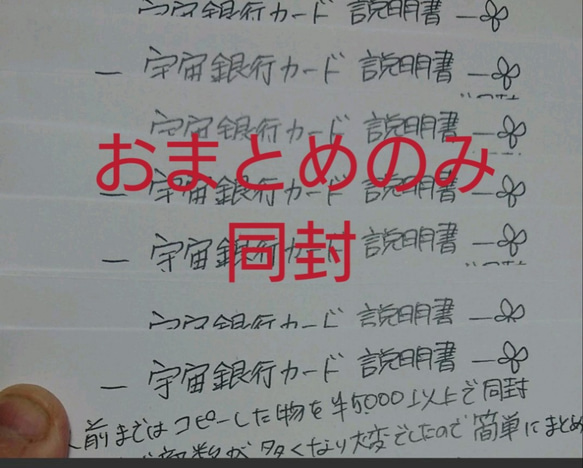 宇宙銀行カード 説明書
― 宇宙銀行カード 説明書 ―
宇宙銀行カード 説明書 ―
おまとめのみ
― 宇宙銀行カード 説明書 ―
同封
― 宇宙銀行カード 説明書 ―
宇宙銀行カード 説明書 ―
― 宇宙銀行カード 説明書 ―
前まではコピーした物を¥5000以上で同封
数が多くなり大変でしたので簡単にまとめ